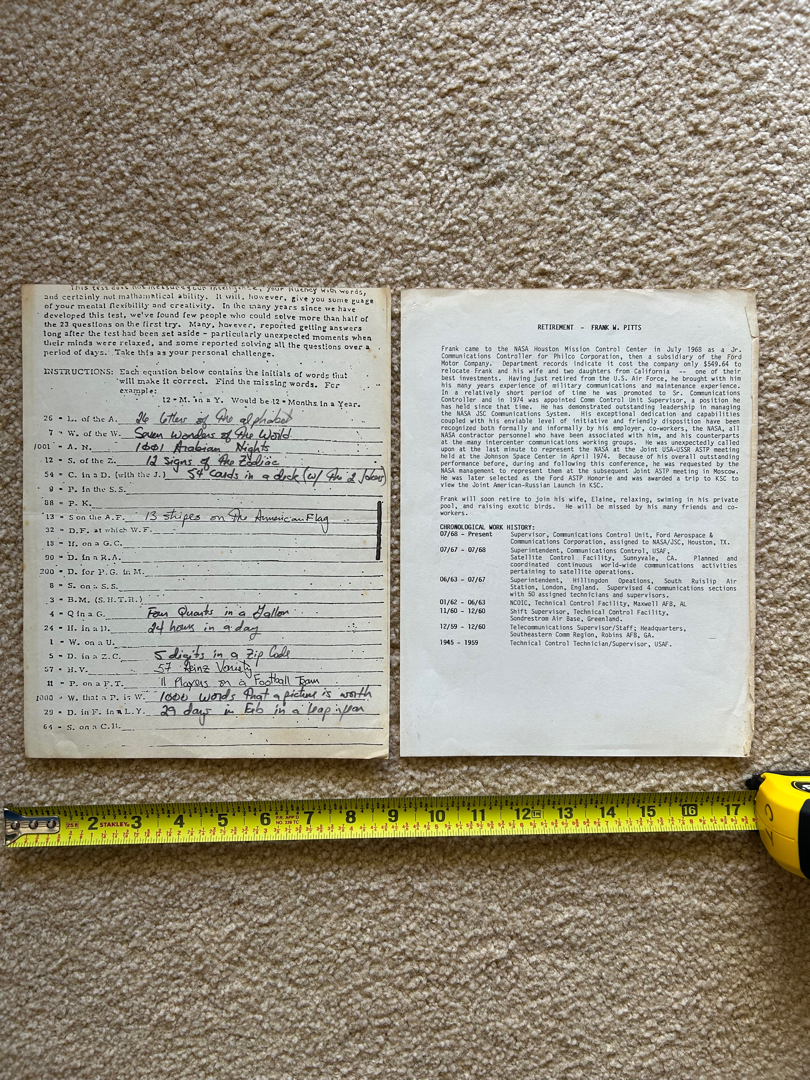 This test does not measure your intelligence, your fluency with words,
and certainly not mathematical ability. It will, however, give you some guage
of your mental flexibility and creativity. In the many years since we have
developed this test, we've found few people who could solve more than half of
the 23 questions on the first try. Many, however, reported getting answers
long after the test had been set aside - particularly unexpected moments when
their minds were relaxed, and some reported solving all the questions over a
period of days. Take this as your personal challenge.
INSTRUCTIONS: Each equation below contains the initials of words that
will make it correct. Find the missing words. For
example:
12 - M. in a Y. Would be 12 - Months in a Year.
26 - L. of the A. 26 letters of the alphabet
7 - W. of the W. Seven wonders of the World
1001 - A. N. 1001 Arabian Nights
12 - S. of the Z. 12 signs of the Zodiac
54 - C. in a D. (with the J.) 54 cards in a deck (w/ the 2 Jokers)
9 - P. in the S.S.
88 - P. K.
13 - S on the A.F. 13 stripes on the American Flag
32 - D.F. at which W.F.
18 - H. on a G.C.
90 - D. in a R.A.
200 - D. for P. G. in M.
8 - S. on a S.S.
3 - B.M. (S.H.T.R.)
4 - Q in a G. Four Quarts in a Gallon
24 - H. in a D. 24 hours in a day
1 - W. on a U.
5 - D. in a Z.C. 5 digits in a Zip Code
57 - H.V. 57 Heinz Variety
11 - P. on a F.T. 11 Players on a Football Team
1000 - W. that a P. is W. 1000 words that a picture is worth
29 - D. in F. in a L.Y. 29 days in Feb in a leap year
64 - S. on a C.B.
RETIREMENT - FRANK W. PITTS
Frank came to the NASA Houston Mission Control Center in July 1968 as a Jr.
Communications Controller for Philco Corporation, then a subsidiary of the Ford
Motor Company. Department records indicate it cost the company only $549.64 to
relocate Frank and his wife and two daughters from California -- one of their
best investments. Having just retired from the U.S. Air Force, he brought with him
his many years experience of military communications and maintenance experience.
In a relatively short period of time he was promoted to Sr. Communications
Controller and in 1974 was appointed Comm Control Unit Supervisor, a position he
has held since that time. He has demonstrated outstanding leadership in managing
the NASA JSC Communications System. His exceptional dedication and capabilities
coupled with his enviable level of initiative and friendly disposition have been
recognized both formally and informally by his employer, co-workers, the NASA, all
NASA contractor personnel who have been associated with him, and his counterparts
at the many intercenter communications working groups. He was unexpectedly called
upon at the last minute to represent the NASA at the Joint USA-USSR ASTP meeting
held at the Johnson Space Center in April 1974. Because of his overall outstanding
performance before, during and following this conference, he was requested by the
NASA management to represent them at the subsequent Joint ASTP meeting in Moscow.
He was later selected as the Ford ASTP Honorie and was awarded a trip to KSC to
view the Joint American-Russian Launch in KSC.
Frank will soon retire to join his wife, Elaine, relaxing, swiming in his private
pool, and raising exotic birds. He will be missed by his many friends and co-
workers.
CHRONOLOGICAL WORK HISTORY:
07/68 - Present Supervisor, Communications Control Unit, Ford Aerospace &
Communications Corporation, assigned to NASA/JSC, Houston, TX.
07/67 - 07/68 Superintendent, Communications Control, USAF,
Satellite Control Facility, Sunnyvale, CA. Planned and
coordinated continuous world-wide communications activities
pertaining to satellite operations.
06/63 - 07/67 Superintendent, Hillingdon Opeations, South Ruislip Air
Station, London, England. Supervised 4 communications sections
with 50 assigned technicians and supervisors.
01/62 - 06/63 NCOIC, Technical Control Facility, Maxwell AFB, AL
11/60 - 12/60 Shift Supervisor, Technical Control Facility,
Sondrestrom Air Base, Greenland.
12/59 - 12/60 Telecommunications Supervisor/Staff; Headquarters,
Southeastern Comm Region, Robins AFB, GA.
1945 - 1959 Technical Control Technician/Supervisor, USAF.
2 STANLEY 3 4 5 6 7 8 9 10 11 12 13 14 15 16 17